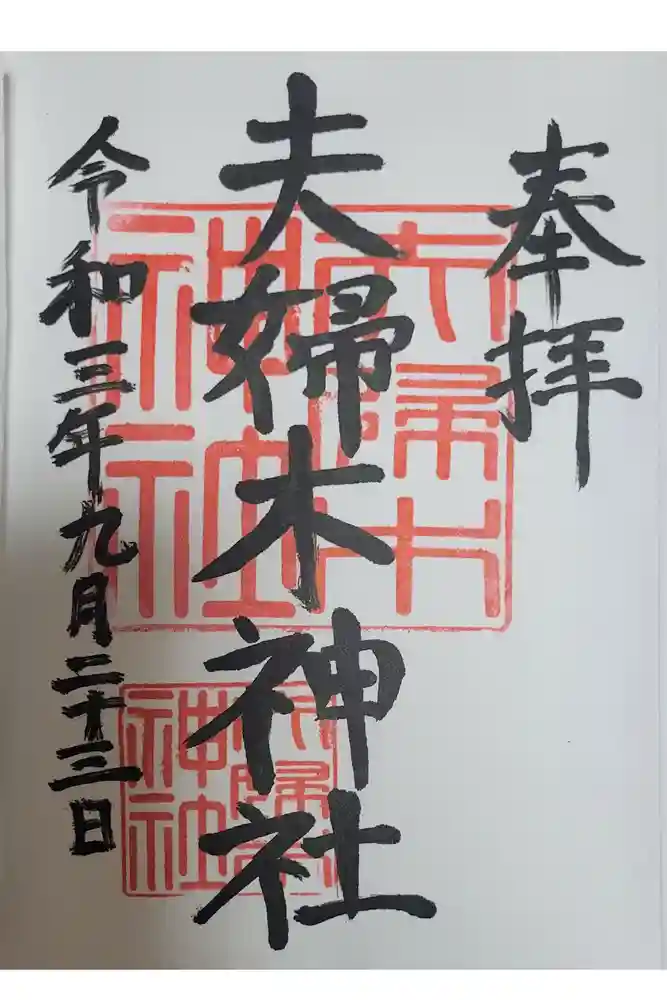 奉拝
夫婦木神社
令和三年九月二十三日
夫婦木
神社
夫婦木
神社